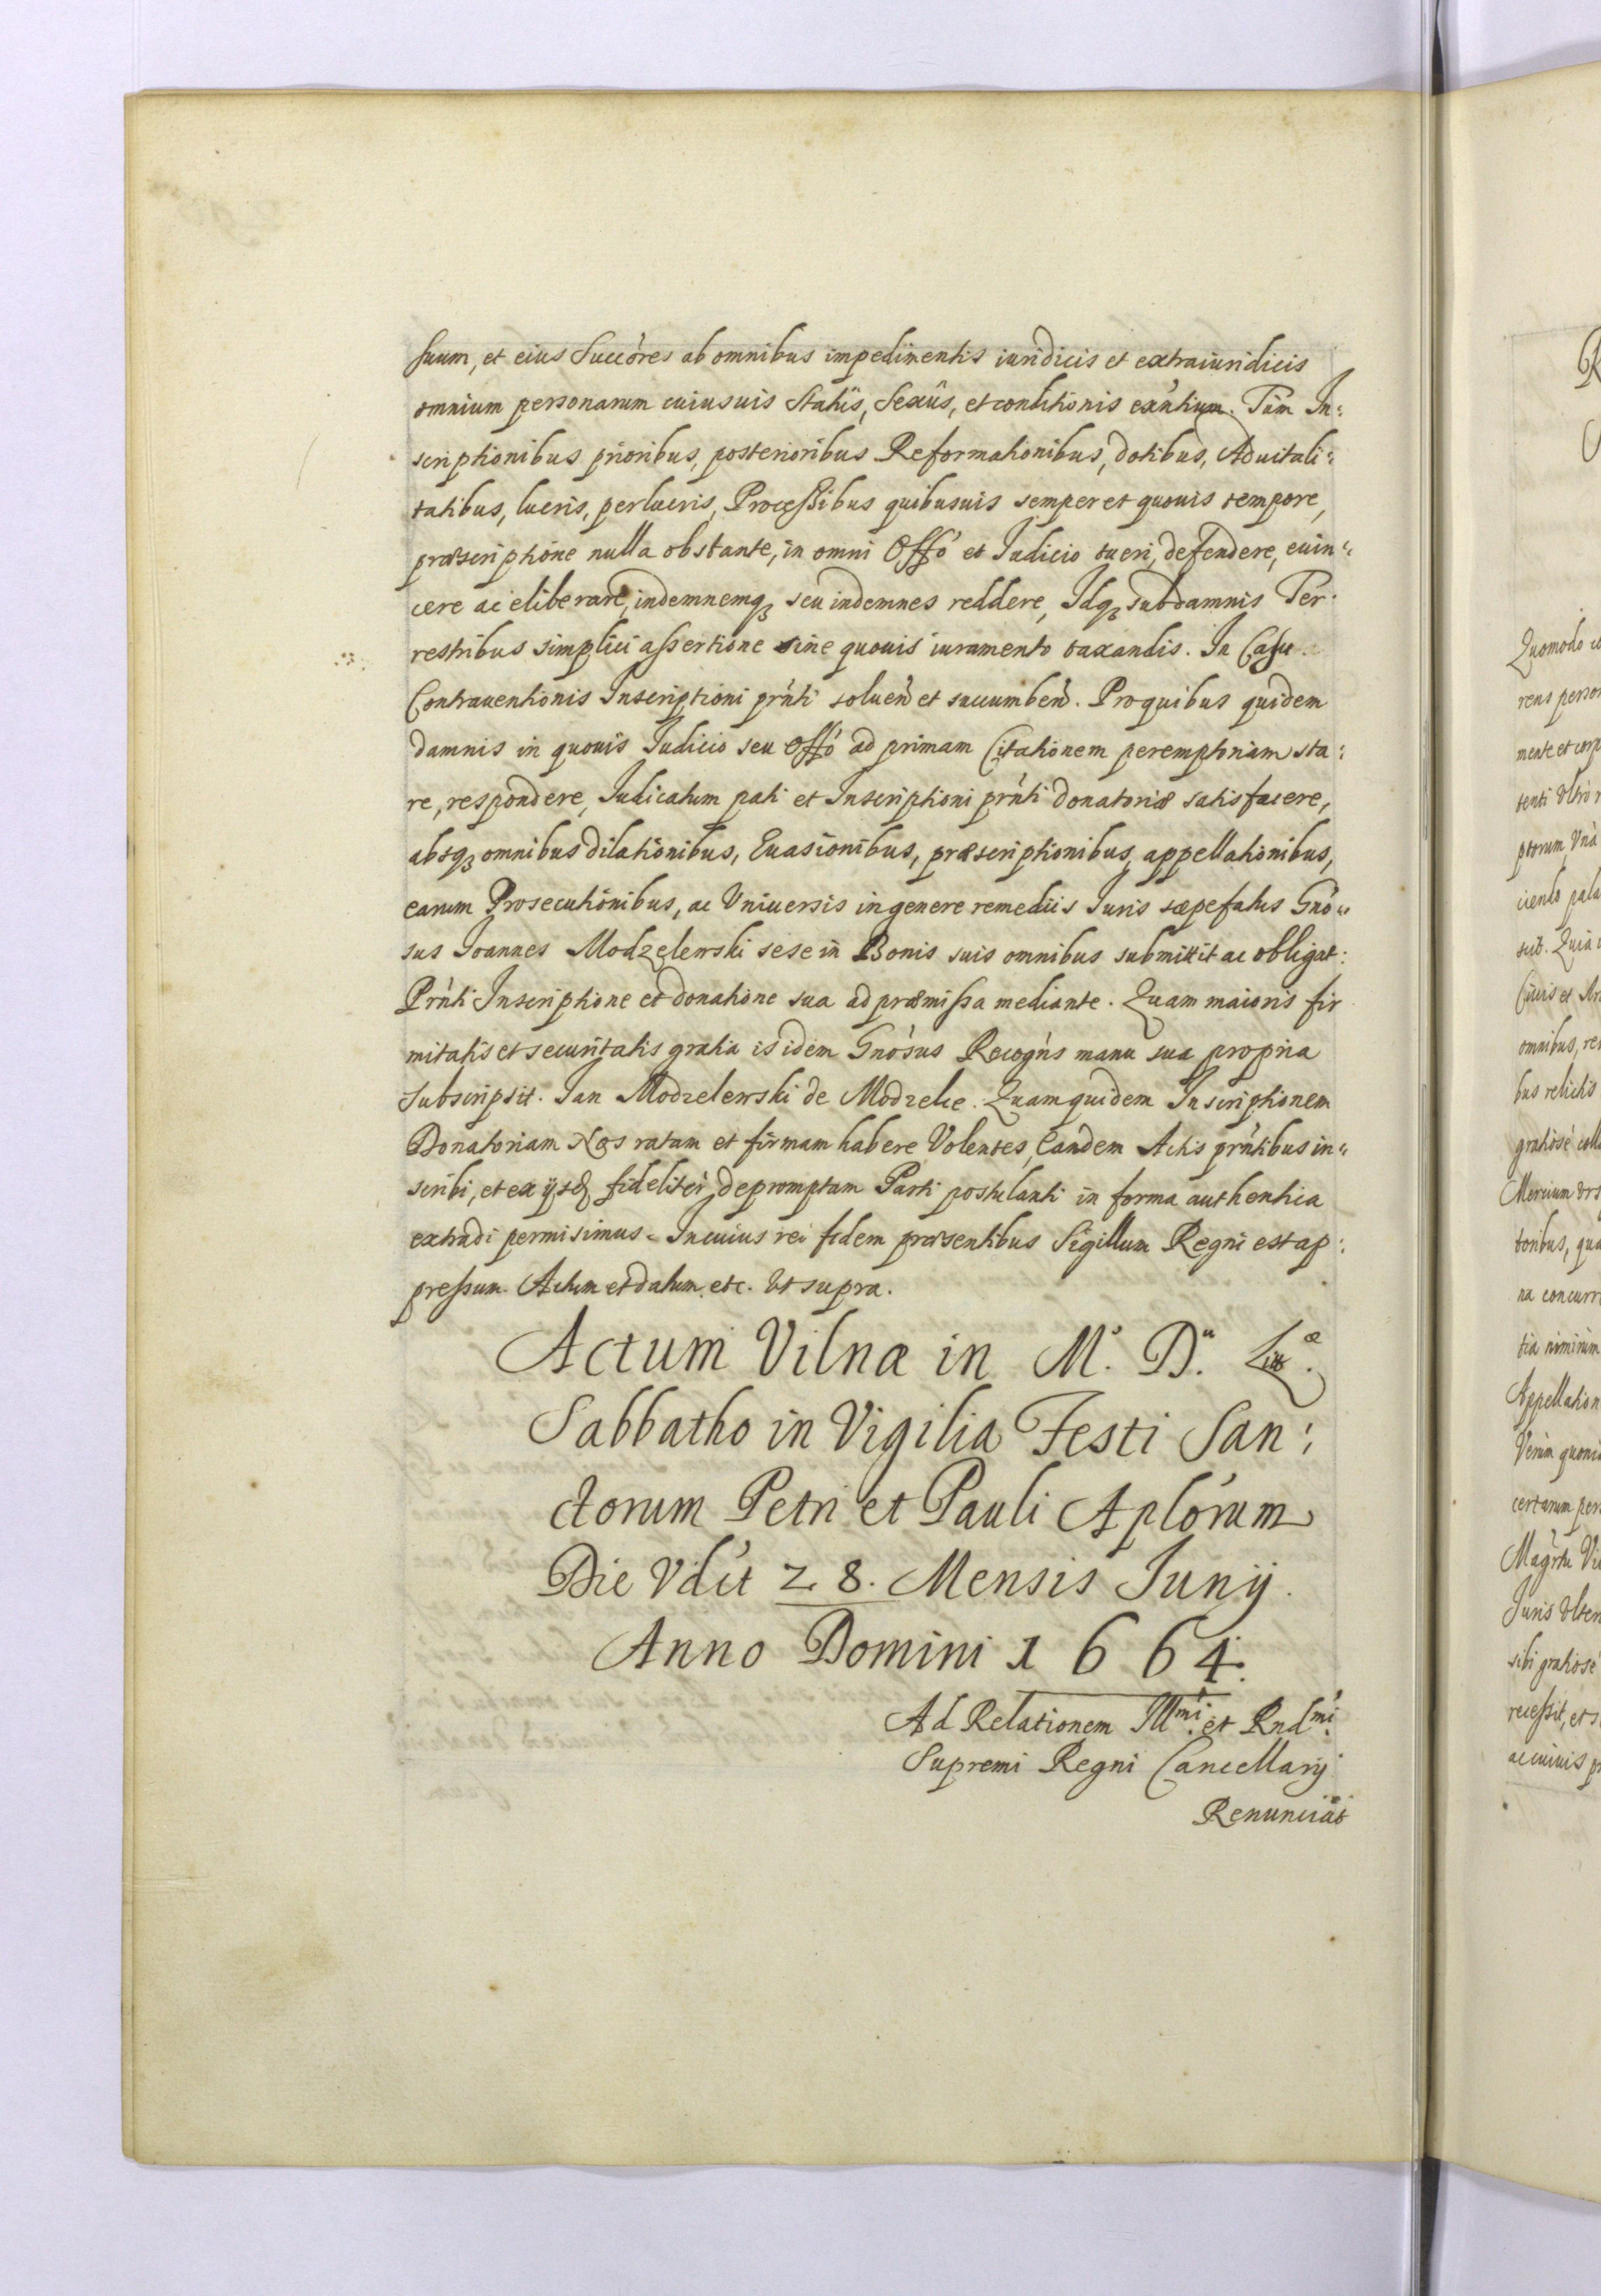 suum, et eius Succóres ab omnibus impedimentis iuridicis et extraiuridicis
omnium personarum cuiusuis Statûs, Sexûs, et conditionis exńtium. Tàm In:
scriptionibus prioribus, posterioribus Reformationibus, dotibus, Aduitali:
tatibus, lucris, perlucris, Processibus quibusuis semper et quouis tempore,
præscriptione nulla obstante, in omni Offó et Iudicio tueri, defendere, euin:
cere ac eliberare, indemnemq seu indemnes reddere, Idq sub damnis Ter:
restribus simplici assertione sine quouis iuramento taxandis. In Casu
Contrauentionis Inscriptioni prńti soluen et succumben. Pro quibus quidem
damnis in quouis Iudicio seu Offó ad primam Citationem peremptoriam sta:
re, respondere, Iudicatum pati et Inscriptioni prńti donatoriæ satisfacere,
absq omnibus dilationibus, Euasionibus, præscriptionibus, appellationibus,
earum Prosecutionibus, ac Vniuersis in genere remediis Iuris sæpefatus Gnó:
sus Joannes Modzelewski sese in Bonis suis omnibus submittit ac obligat:
Prńti Inscriptione et donatione sua ad præmissa mediante. Quam maioris fir
mitatis et securitatis gratia is idem Gnósus Recogńs manu sua propria
subscripsit. Jan Modzelewski de Modzele. Quam quidem Inscriptionem
Donatoriam Nos ratam et firmam habere Volentes, Eandem Actis prńtibus in:
scribi, et ex ijsd fideliter depromptam Parti postulanti in forma authentica
extradi permisimus. In cuius rei fidem præsentibus Sigillum Regni est ap:
pressum. Actum et datum etc. Vt supra.
Actum Vilnæ in M. D. Litæ.
Sabbatho in Vigilia Festi San:
ctorum Petri et Pauli Aplórum
Die Vdct 28. Mensis Junij.
Anno Domini 1664.
Ad Relationem Illmi et Rndmi
Supremi Regni Cancellarij
Renunciat
Quomodo
mente et
tenti Vltrò
ptorum, Vnà
sub. Quia
omnibus,
bus relictis
gratiosè
Mercium
toribus,
na
tia nimirum
Appellation
certarum
Iuris Vlter
sibi gratiosè
recessit, et
ac cuiuis